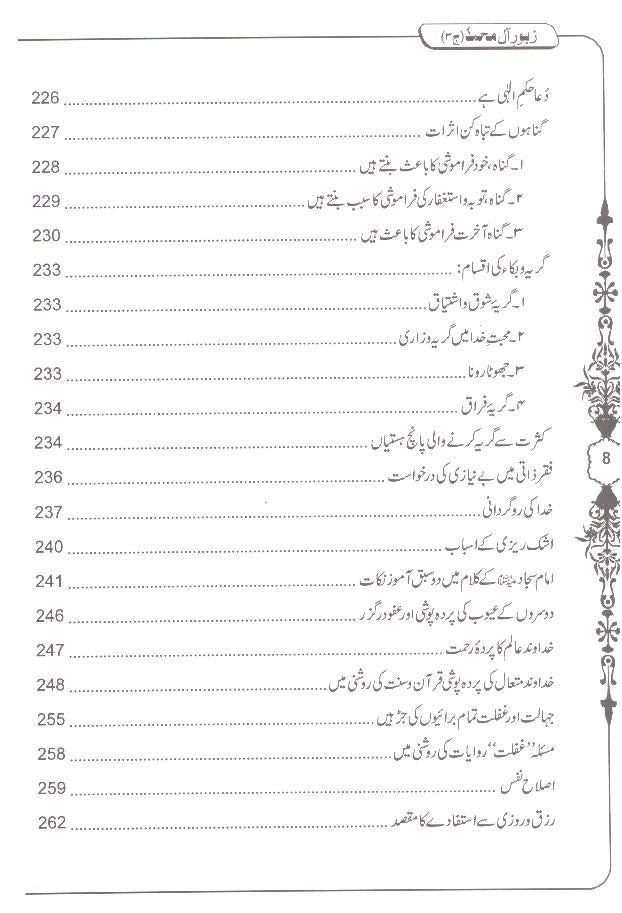 زبورِ آل محمدؐ (ج ۳)
دُعا حکمِ الٰہی ہے ........ 226
گناہوں کے تباہ کن اثرات ........ 227
۱۔ گناہ، خود فراموشی کا باعث بنتے ہیں ........ 228
۲۔ گناہ، توبہ و استغفار کی فراموشی کا سبب بنتے ہیں ........ 229
۳۔ گناہ آخرت فراموشی کا باعث ہیں ........ 230
گریہ و بکاء کی اقسام: ........ 233
۱۔ گریۂ شوق و اشتیاق ........ 233
۲۔ محبتِ خدا میں گریہ وزاری ........ 233
۳۔ جھوٹا رونا ........ 233
۴۔ گریۂ فراق ........ 234
کثرت سے گریہ کرنے والی پانچ ہستیاں ........ 234
فقر ذاتی میں بے نیازی کی درخواست ........ 236
خدا کی روگردانی ........ 237
اشک ریزی کے اسباب ........ 240
امام سجاد علیہ السلام کے کلام میں دو سبق آموز نکات ........ 241
دوسروں کے عیوب کی پردہ پوشی اور عفو درگزر ........ 246
خداوند عالم کا پردۂ رحمت ........ 247
خداوند متعال کی پردہ پوشی قرآن وسنت کی روشنی میں ........ 248
جہالت اور غفلت تمام برائیوں کی جڑ ہیں ........ 255
مسئلہ ”غفلت“ روایات کی روشنی میں ........ 258
اصلاح نفس ........ 259
رزق وروزی سے استفادے کا مقصد ........ 262
8